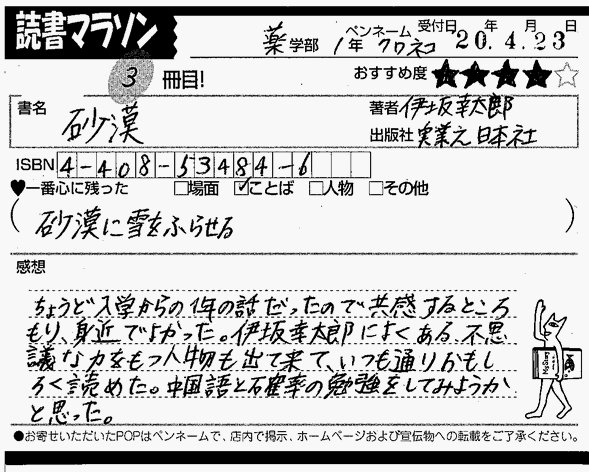 読書マラソン
薬学部 1年 ペンネーム クロネコ 受付日 20年4月23日
3冊目! おすすめ度 ★★★★☆
書名 砂漠
著者 伊坂幸太郎
出版社 実業之日本社
ISBN 4-408-53484-6
♥一番心に残った □場面 ☑ことば □人物 □その他
(砂漠に雪をふらせる)
感想
ちょうど入学からの1年の話だったので共感するところ
もり、身近でよかった。伊坂幸太郎によくある、不思
議な力をもつ人物も出て来て、いつも通りおもし
ろく読めた。中国語と確率の勉強をしてみようか
と思った。
●お寄せいただいたPOPはペンネームで、店内で掲示、ホームページおよび宣伝物への転載をご了承ください。